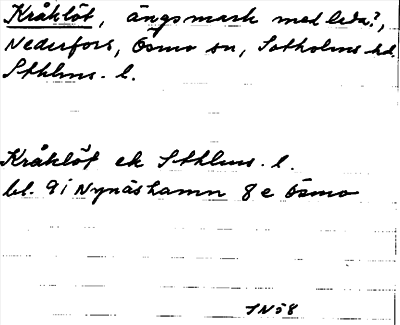 Kråklöt, ängsmark med lada?,
Nederfors, Ösmo sn, Sotholms hd.
Sthlms. l.
Kråklöt ek Sthlms. l.
bl. 9 i Nynäshamn 8 e Ösmo